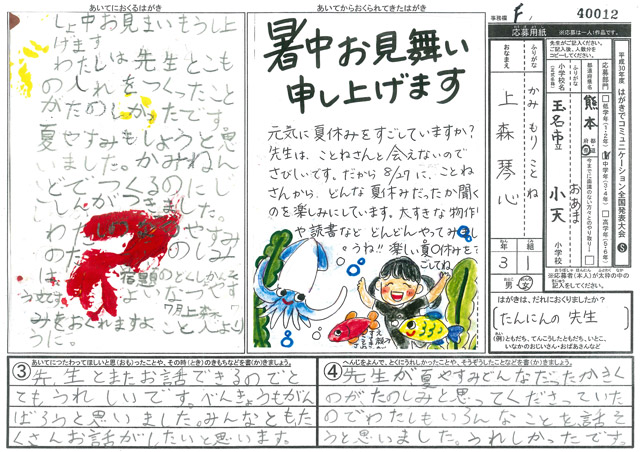 あいてにおくるはがき
しょ中お見まいもうし上
げます
わたしは先生とも
のしれをつったこと
がたのしかったです。
夏やすみもしようと思
いました。かみねん
どでつくるのにし
しんがつきました。
わたし
のた
は
みをおくれますよ
うに。
7月
上森
こと
あいてからおくられてきたはがき
暑中お見舞い
申し上げます
元気に夏休みをすごしていますか?
先生は、ことねさんと会えないので
さびしいです。だから8/27に、ことね
さんから、どんな夏休みだったか聞く
のを楽しみにしています。大すきな物作り
や読書など どんどんやってみまし
うね!! 楽しい夏休みを
すごしてね。
事務欄
F
40012
応募用紙
※応募は一人1作品です。
おなまえ
ふりがな
かみ もり ことね
上森琴心
年
3
組
1
男
女
先生がご記入ください。
ご記入後、人数分を
コピーしてください。
小学校名
(正式名称)
都道府県名
ふりがな
熊本
都道府県
玉名市立
おあま
小天
小学校
今までに面識のない方々とのやり取り
応募部門
低学年(1・2年)
中学年(3・4年)
高学年(5・6年)
平成30年度 はがきでコミュニケーション全国発表大会
S
※応募者(本人)が太枠の中の
記入をしてください。
はがきは、だれにおくりましたか?
たんにんの先生
(例)ともだち、てんこうしたともだち、いとこ、
いなかのおじいさん・おばあさんなど
あいてにつたわってほしいと思(おも)ったことや、その時(とき)のきもちなどを書(か)きましょう。
③先生とまたお話できるのでと
てもうれしいです。べんきょうもがん
ばろうと思いました。みんなともた
くさんお話がしたいと思います。
へんじをよんで、とくにうれしかったことや、そうぞうしたことなどを書(か)きましょう。
④先生が夏やすみどんなだったかきく
のがたのしみと思ってくださっていた
のでわたしもいろんなことを話そ
うと思いました。うれしかったです。